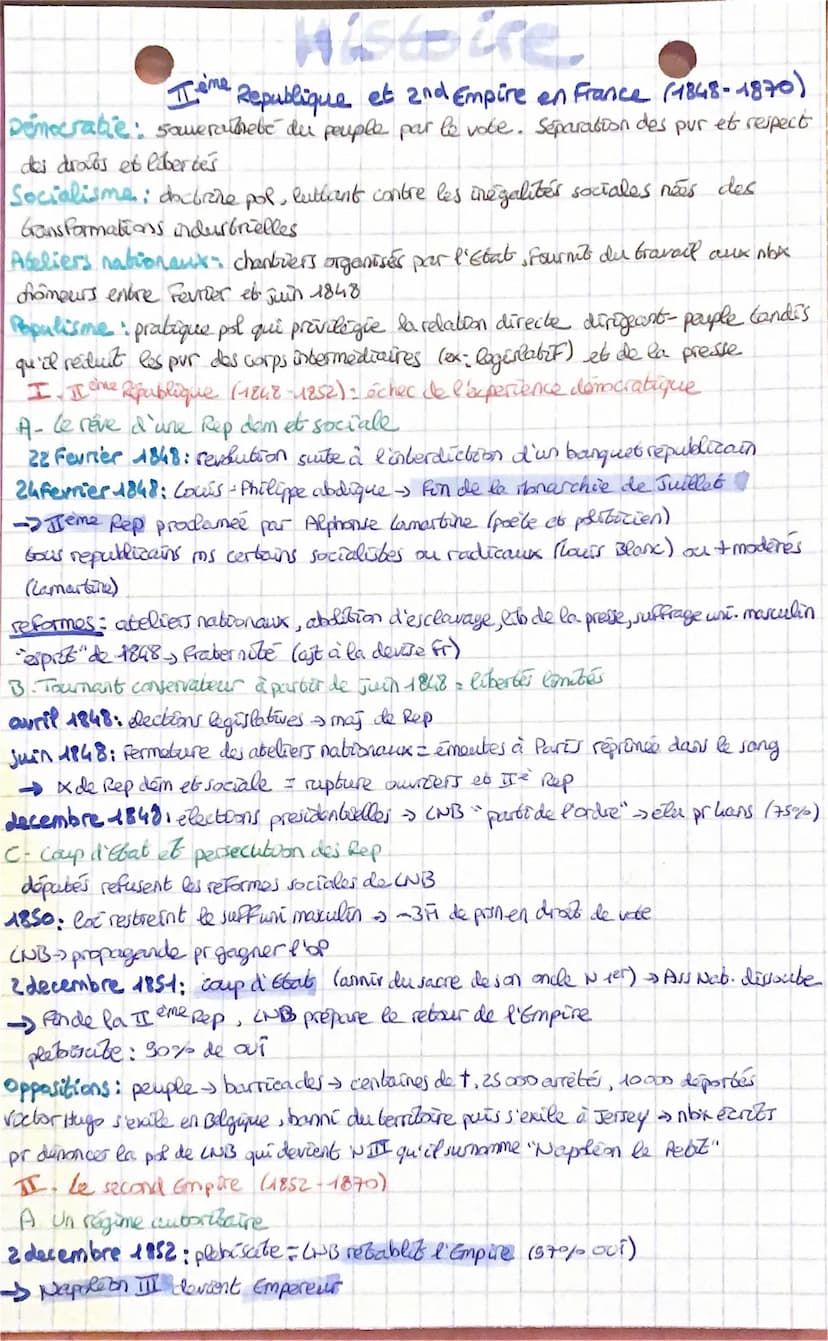 Histoire
IIème Republique et 2nd Empire en France (1848-1870)
Démocratie : souveraineté du peuple par le vote. Séparation des pvr et respect
des droits et libertés
Socialisme : doctrine pol, luttant contre les inégalités sociales nées des
transformations industrielles
Ateliers nationaux : chantiers organisés par l'Etat, fournit du travail aux nbx
chômeurs entre Février et juin 1848
Populisme : pratique pol qui privilégie la relation directe dirigeant-peuple tandis
qu'il réduit les pvr des corps intermédiaires (ex: législatif) et de la presse
I. IIème République (1848-1852) : échec de l'expérience démocratique
A- Le rêve d'une Rep dem et sociale
22 Fevrier 1848 : revolution suite à l'interdiction d'un banquet republicain
24 Fevrier 1848 : Louis-Philippe abdique → Fin de la Monarchie de Juillet
→ IIème Rep proclamée par Alphonse Lamartine (poète et politicien)
tous republicains ms certains socialistes ou radicaux (Louis Blanc) ou + modérés
(Lamartine)
reformes : ateliers nationaux, abolition d'esclavage, lib de la presse, suffrage uni. masculin
"esprit" de 1848 → Fraternité (ajt à la devise fr)
B. Tournant conservateur à partir de juin 1848 = libertés limités
avril 1848 : élections legislatives → maj de Rep
juin 1848 : Fermeture des ateliers nationaux = émeutes à Paris réprimée dans le sang
→ X de Rep dém et sociale = rupture ouvriers et IIè Rep
decembre 1848 : élections presidentielles → LNB "parti de l'ordre" → élu pr 4ans (75%)
C- Coup d'Etat et persecution des Rep
députés refusent les reformes sociales de LNB
1850 : loi restreint le suff uni masculin → -3M de prsn en droit de vote
LNB → propagande pr gagner l'op
2 decembre 1851 : coup d'Etat (anniv du sacre de son oncle N 1er) → Ass Nat. dissoute
→ Fin de la IIème Rep, LNB prépare le retour de l'Empire
plebiscite : 90% de oui
Oppositions : peuple → barricades → centaines de †, 25 000 arrêtés, 10 000 déportés
Victor Hugo s'exile en Belgique, banni du territoire puis s'exile à Jersey → nbx écrits
pr dénoncer la pol de LNB qui devient N III qu'il surnomme "Napoléon le Petit"
II. Le second Empire (1852-1870)
A Un régime autoritaire
2 decembre 1852 : plebiscite = LNB retablit l'Empire (97% oui)
→ Napoléon III devient Empereur